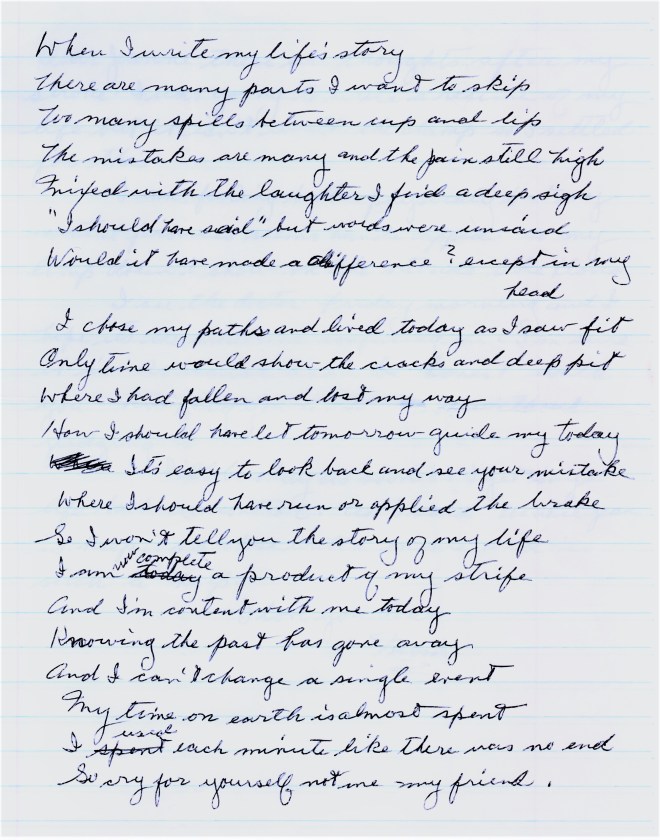 When I write my life's story
There are many parts I want to skip
Too many spills between cup and lip
The mistakes are many and the pain still high
Mixed with the laughter I find a deep sigh
"I should have said" but words were unsaid
Would it have made a difference? except in my
head
I chose my paths and lived today as I saw fit
Only time would show the cracks and deep pit
Where I had fallen and lost my way
How I should have let tomorrow guide my today
It's easy to look back and see your mistake
Where I should have run or applied the brake
So I won't tell you the story of my life
I am now complete a product of my strife
And I'm content with me today
Knowing the past has gone away
And I can't change a single event
My time on earth is almost spent
I used each minute like there was no end
So cry for yourself, not me my friend.